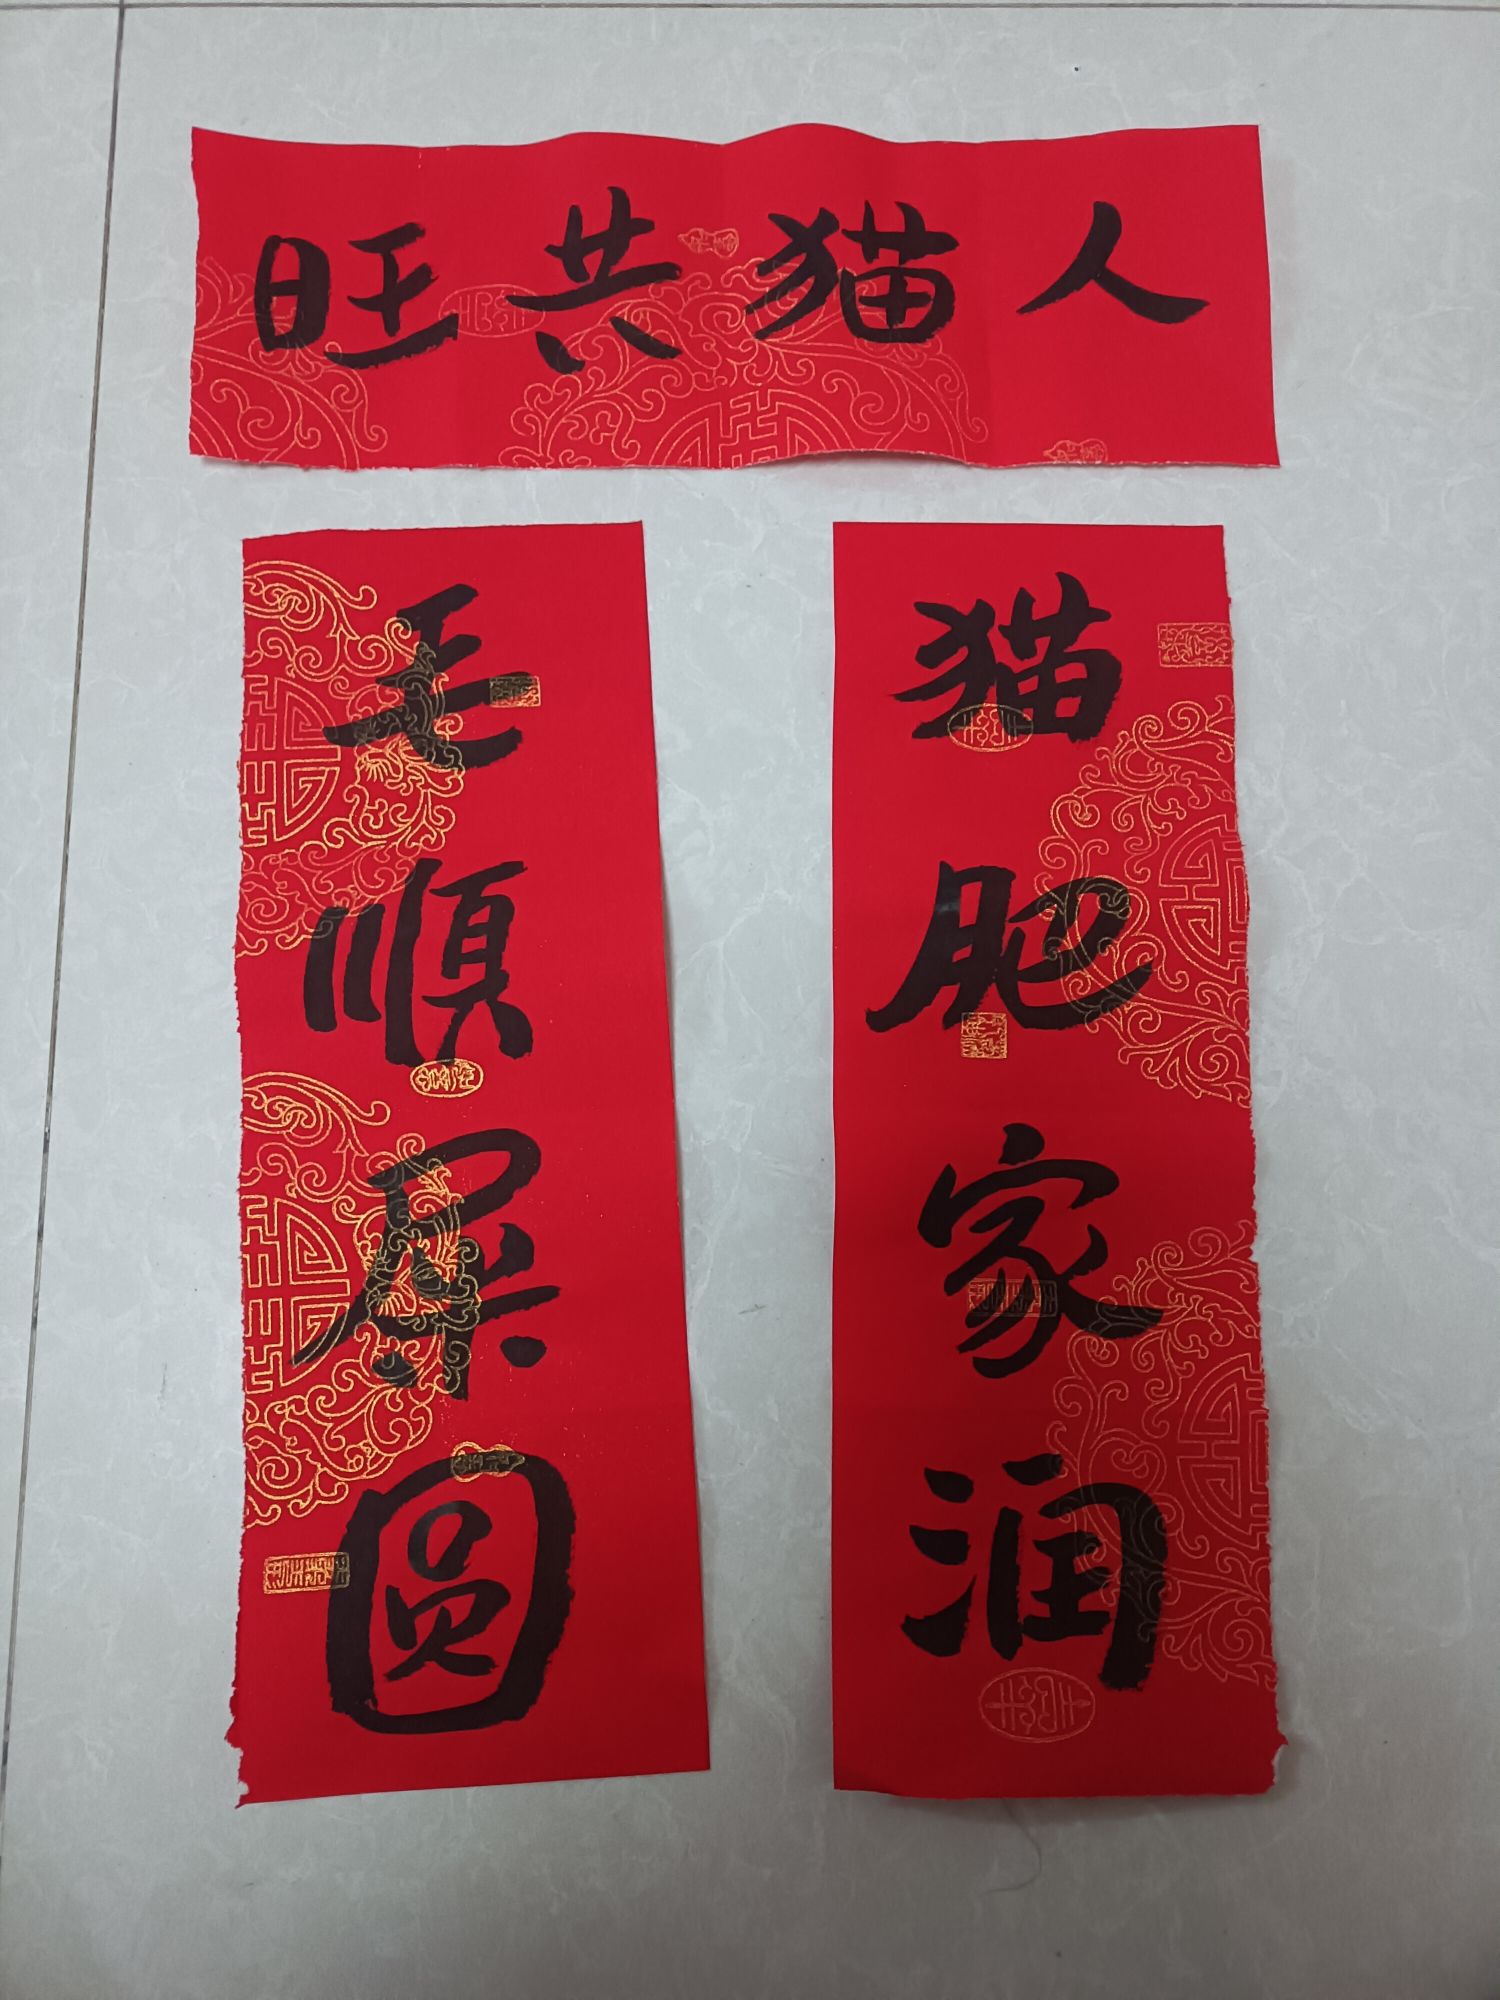 人猫共旺
猫肥家润
毛順屎圆